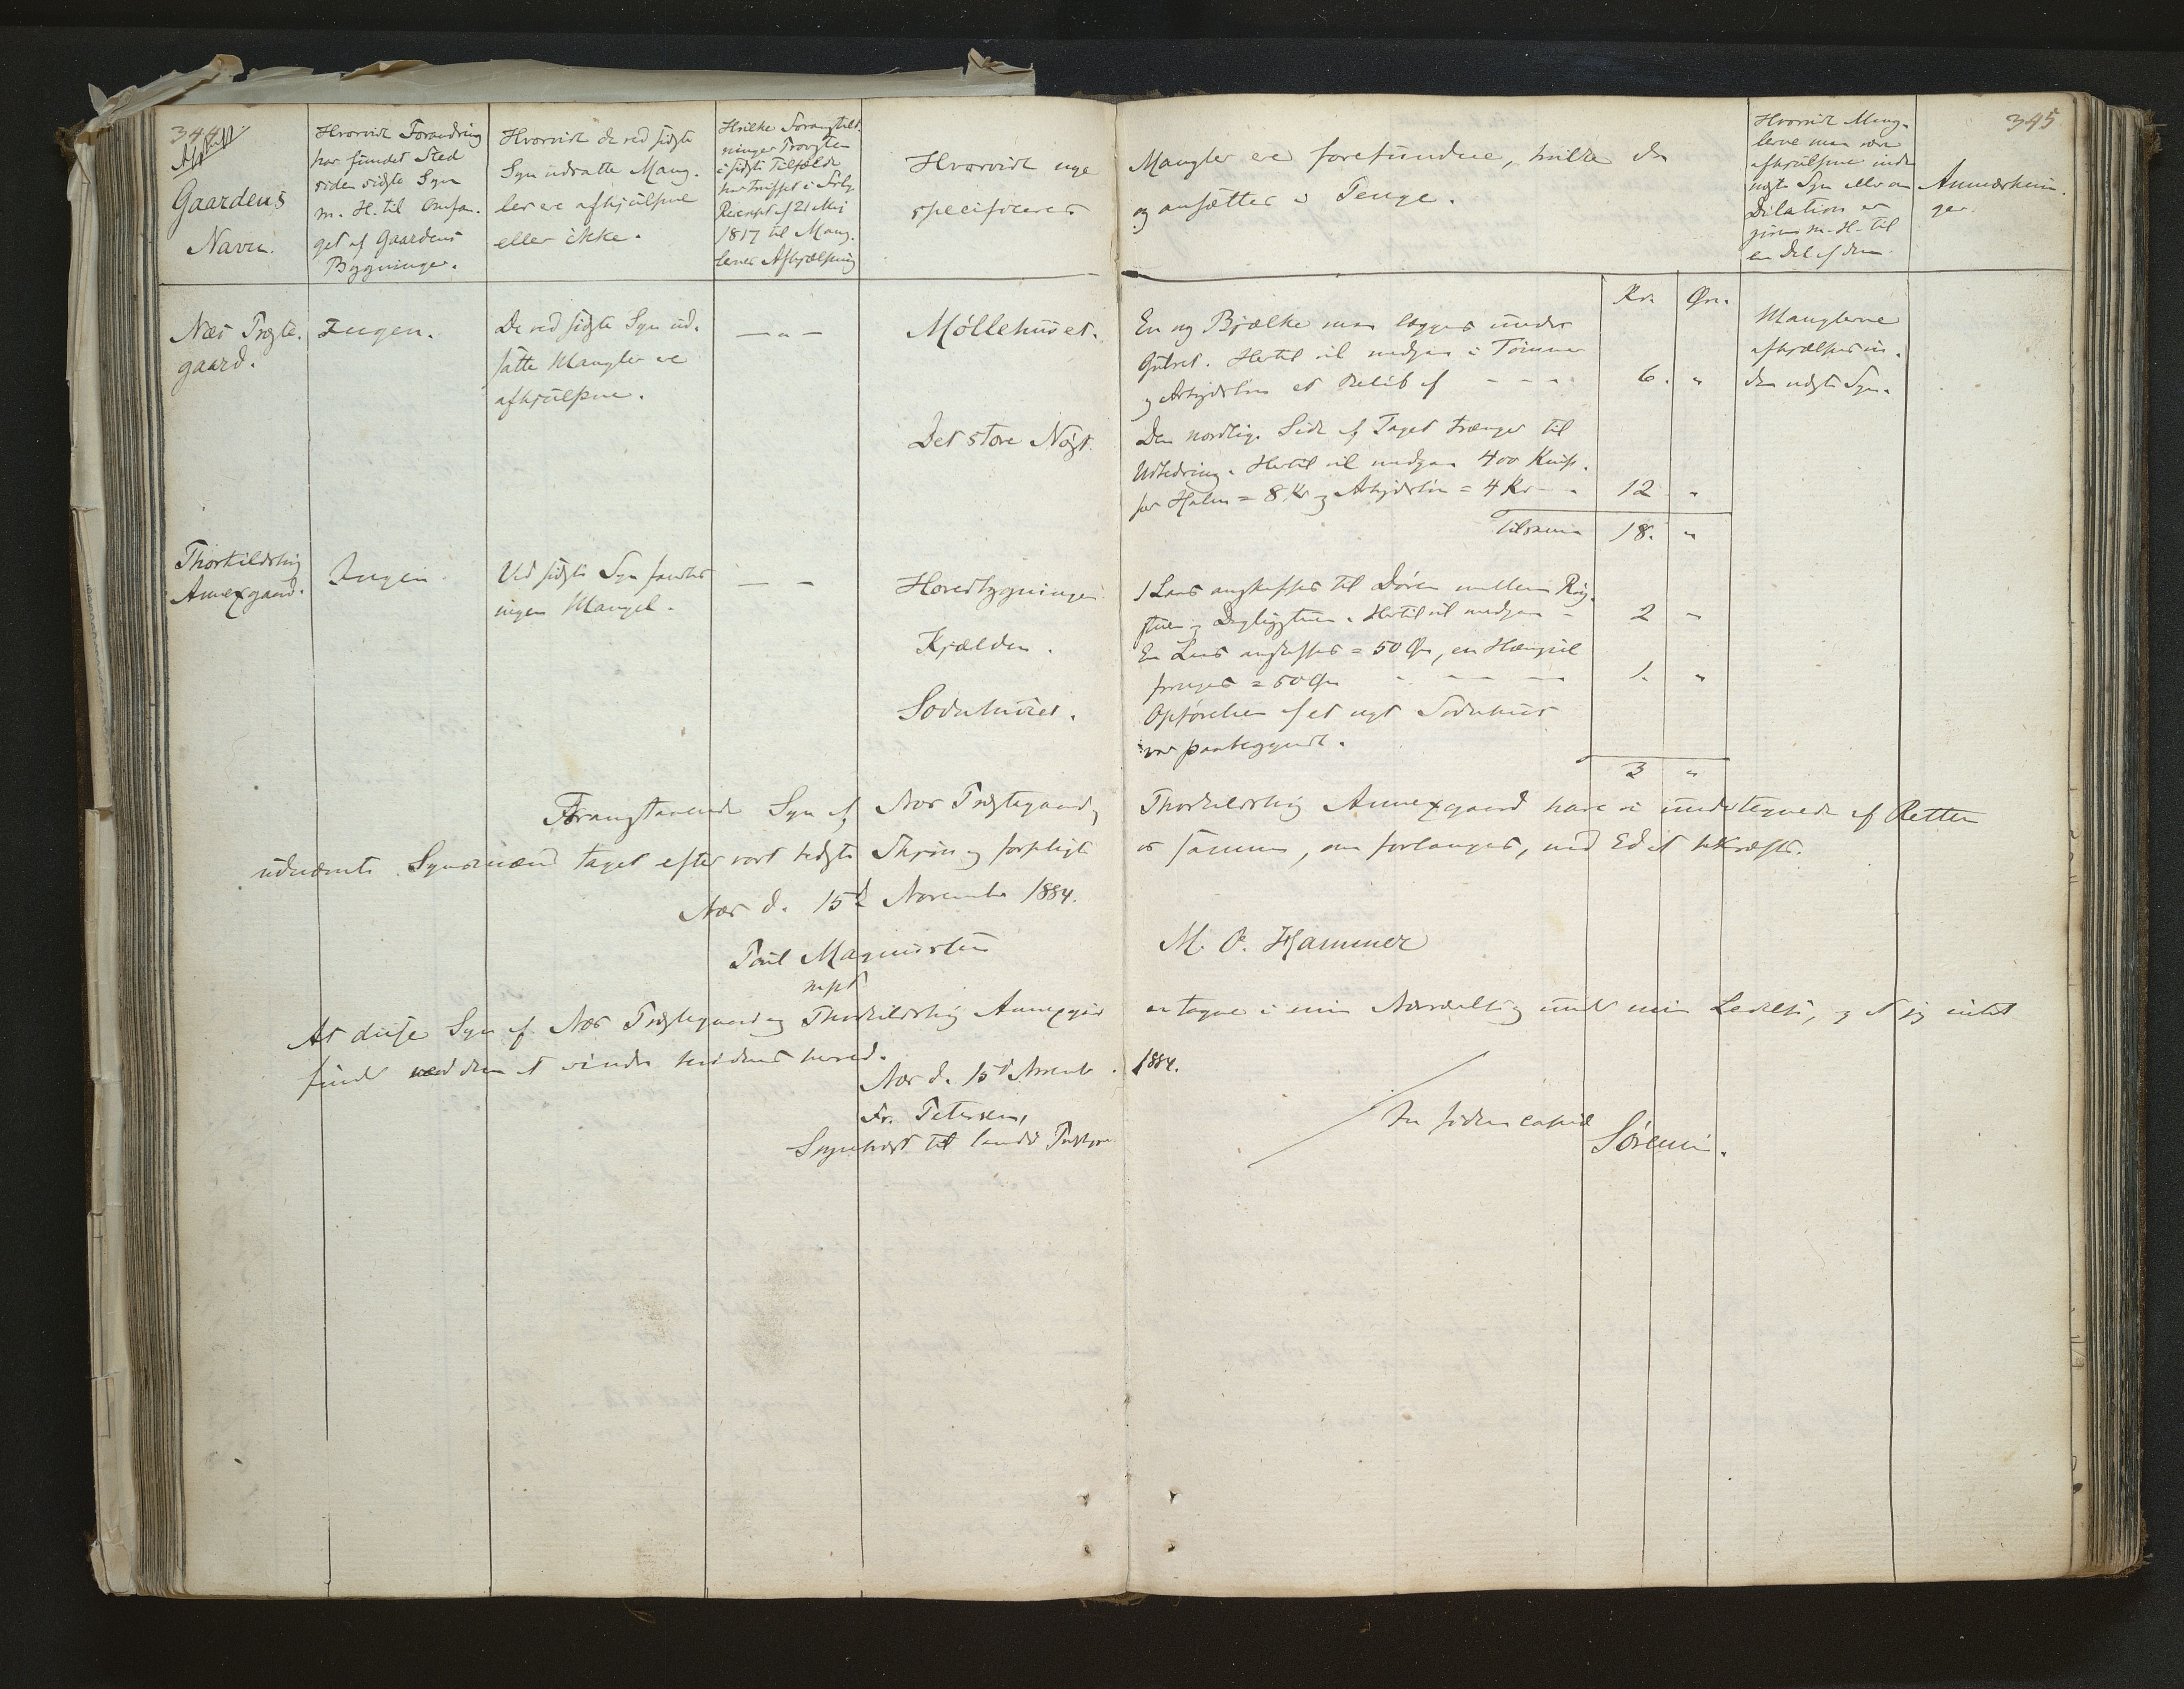 344
Gaardens
Navn.
Hvorvidt Forandring
har fundet Sted
siden sidste Syn
m. H. til Omfan-
get af Gaardens
Bygninger.
Hvorvidt de ved sidste
Syn udsatte Mang-
ler ere afhjulpne
eller ikke.
Hvilke Foranstalt-
ninger Provsten
i sidste Tilfælde
har truffet i Følge
Rescript af 21 Mai
1817 til Mang-
lernes Afhjælpning
Hvorvidt nye
specificeres
Mangler ere forefundne, hvilke da
og ansættes i Penge.
Hvorvidt Mang-
lerne maa være
afhjulpne inden
næste Syn eller om
Dilation er
given m. H. til
en Del af dem.
Anmærknin-
ger.
345
Kr. Øre.
Næs Præste-
gaard.
Ingen.
De ved sidste Syn ud-
satte Mangler ere
afhjulpne.
— „ —
Møllehuset.
En ny Bjælke maa lægges under
Gulvet. Hertil vil medgaa i Tømmer
og Arbejdsløn et Beløb af - - - 6. „
Manglerne
afhjælpes in-
den næste Syn.
Det store Nøst.
Den nordlige Side af Taget trænger til
Udbedring. Hertil vil medgaa 400 Knip-
per Halm = 8 Kr og Arbejdsløn = 4 Kr - 12 „
Tilsammen 18. „
Thorkildshøj
Annexgaard.
Ingen.
Ved sidste Syn fandtes
ingen Mangel.
— —
Hovedbygningen
1 Laas anskaffes til Døren mellem Røg-
stuen og Dagligstuen. Hertil vil medgaa - 2 „
Kjælderen.
En Laas anskaffes = 50 Øre, en
= 50 Øre - - - 1. „
Opførelsen af et nyt
var paabegyndt.
3 „
Foranstaaende Syn af Næs Præstegaard og Thorkildshøj Annexgaard have vi undertegnede af Retten
udnævnte Synsmænd taget efter vort bedste Skjøn og forpligte os samme, om forlanges, med Ed at bekræfte.
Næs d. 15d November 1884.
Poul Magnussen
mpS
M. O. Hammer
At disse Syn af Næs Præstegaard og Thorkildshøj Annexgaard ere tagne i min Nærværelse og under min Ledelse, og at jeg intet
finder ved dem at erindre bevidnes herved.
Næs d. 15d Novemb. 1884.
Fr. Petersen,
Sognepræst til Præstegj.
In fidem copiæ